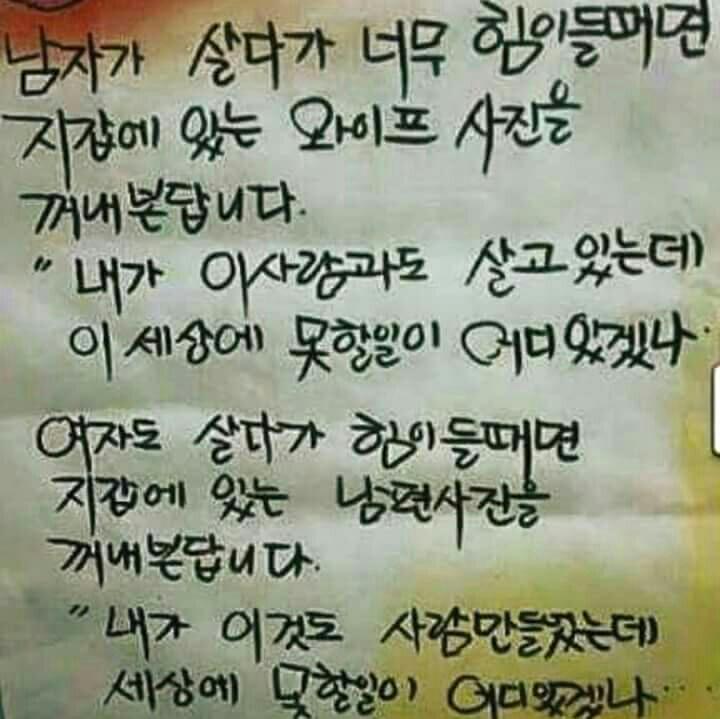 남자가 살다가 너무 힘이들때면
지갑에 있는 와이프 사진을
꺼내본답니다.
“ 내가 이사람과도 살고 있는데
이 세상에 못할일이 어디 있겠나..
여자도 살다가 힘이들때면
지갑에 있는 남편사진을
꺼내본답니다.
“ 내가 이것도 사람만들었는데
세상에 못할일이 어디있겠나....